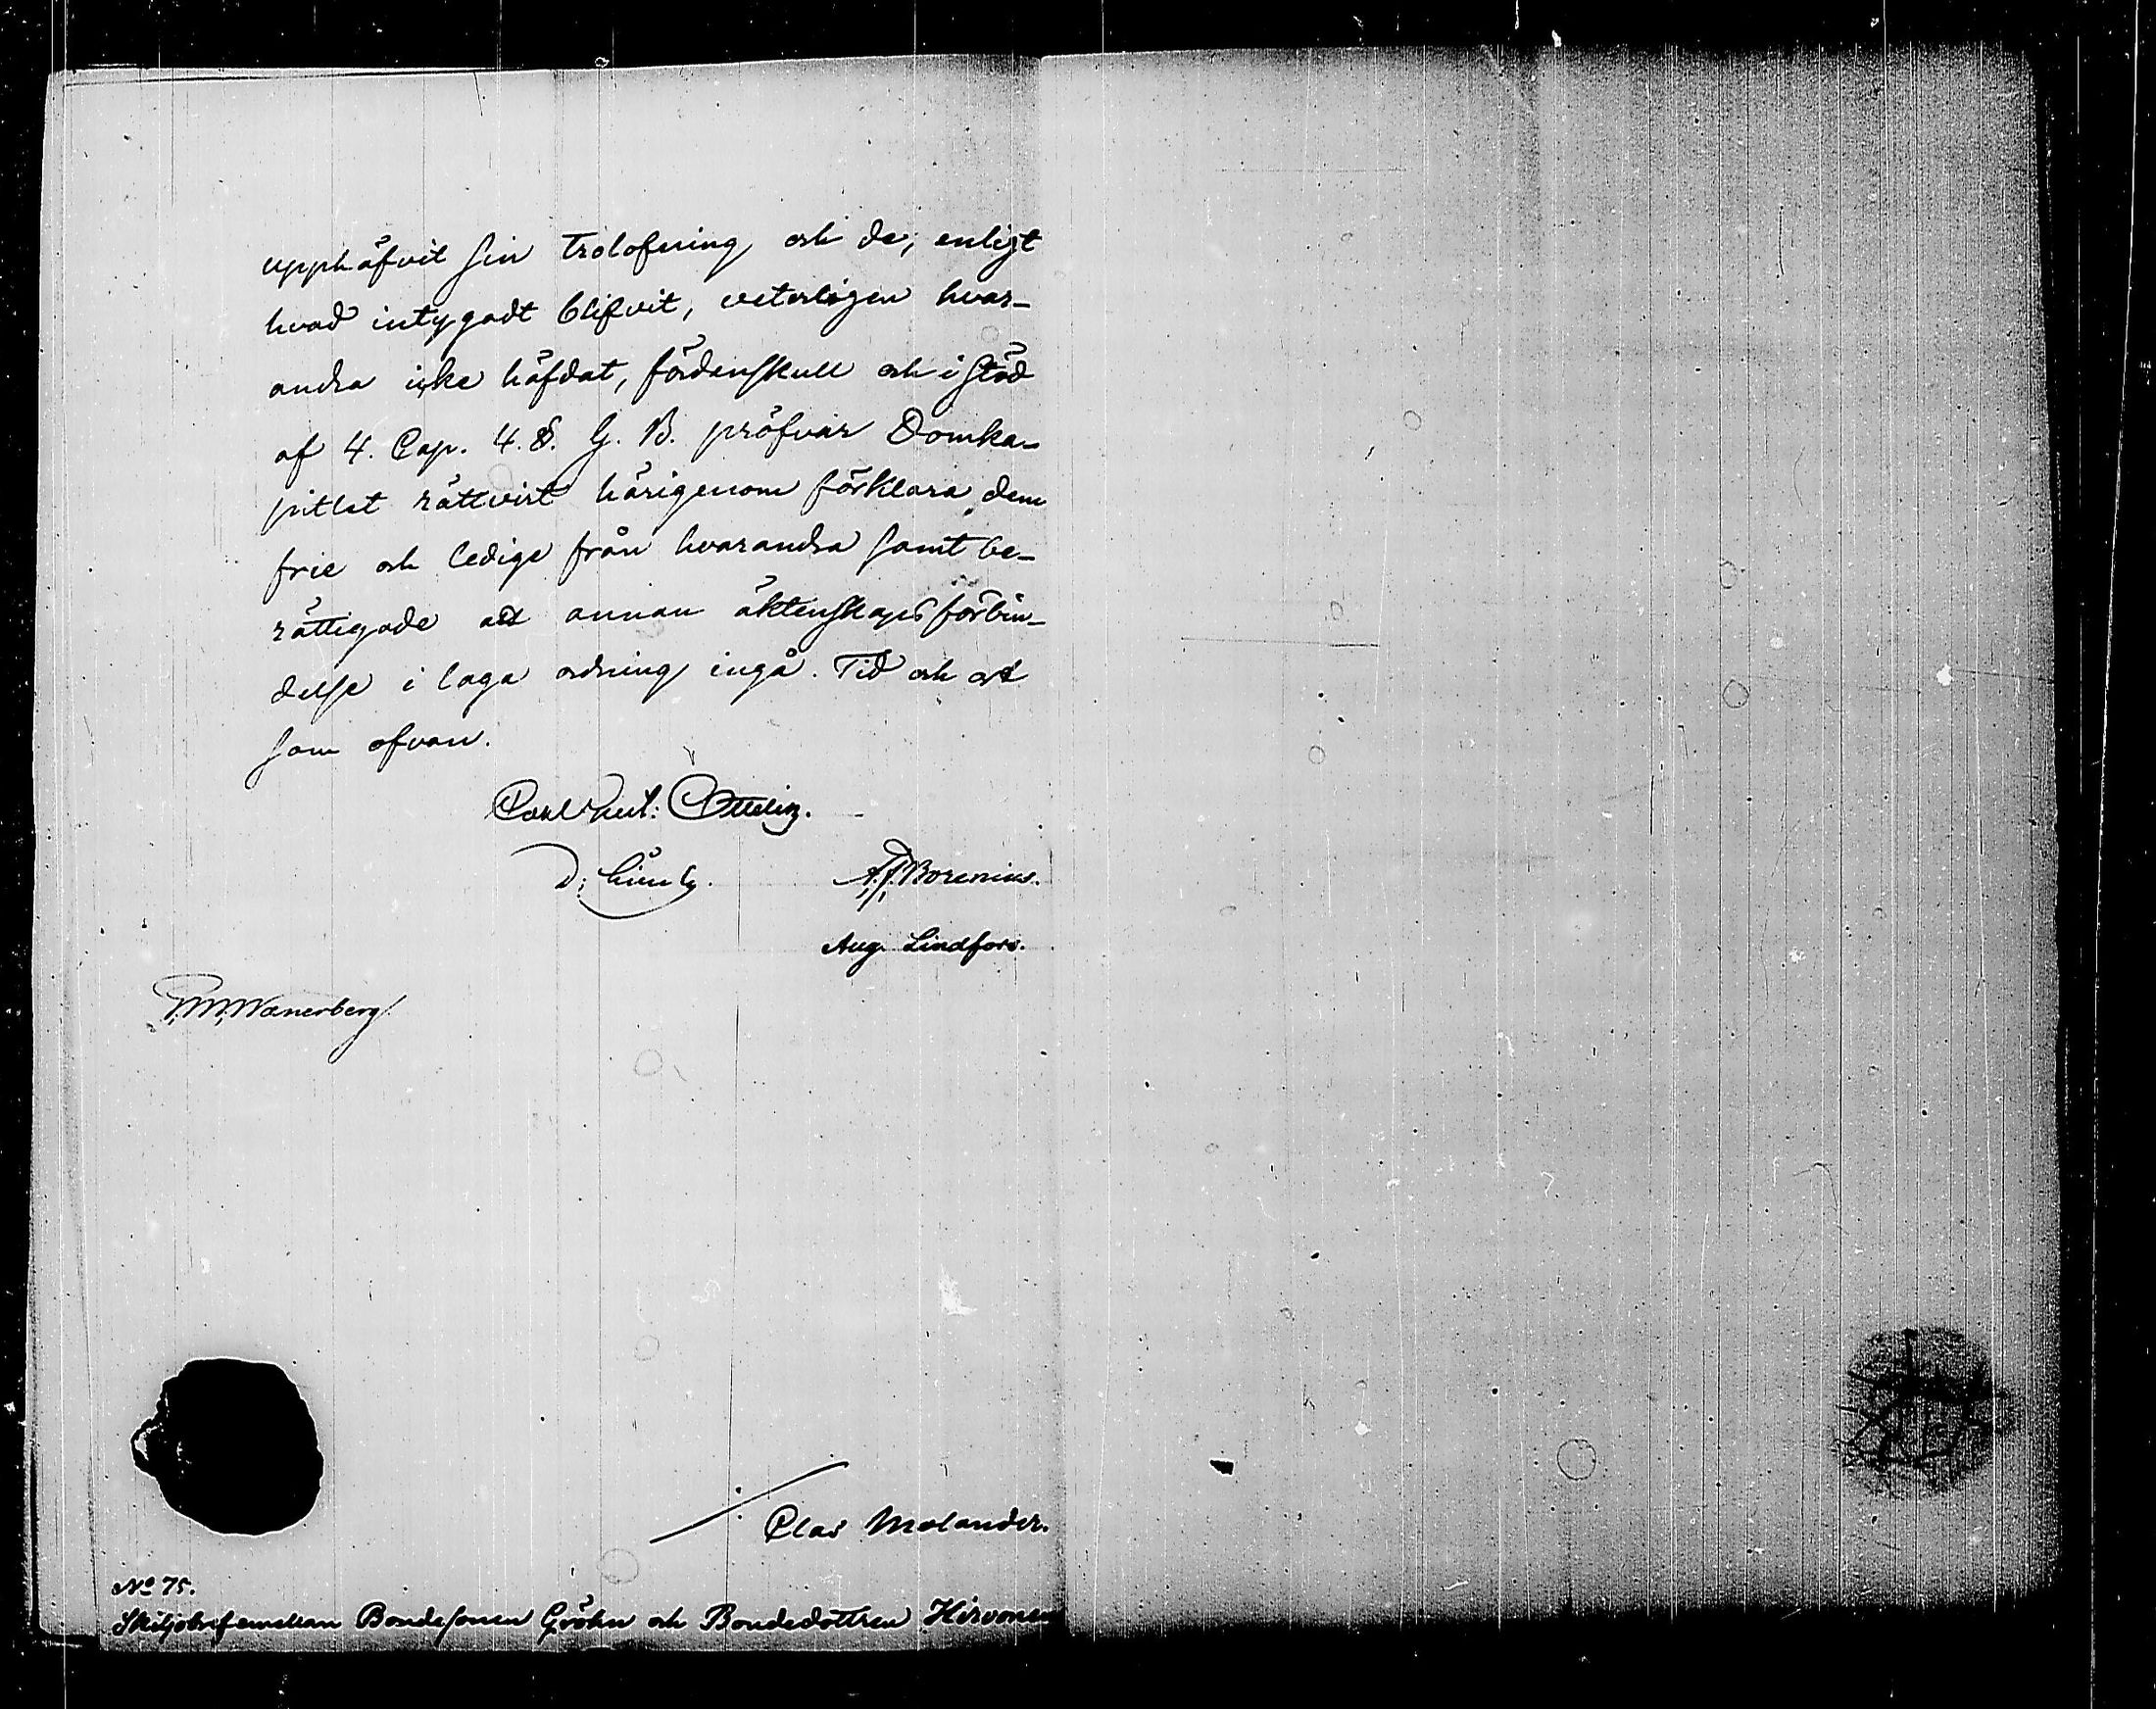 upphäfvit sin trolofning och de, enligt
hvad intygadt blifvit, veterligen hvar-
andra icke häfdat, fördenskull och i stöd
af 4. Cap. 4. §. G. B. pröfvar Domka-
pitlet rättvist härigenom förklara dem
frie och ledige från hvarandra samt be-
rättigade att annan äktenskapsförbin-
delse i laga ordning ingå. Tid och ort
som ofvan.
Carl Gust: Ottelin.
A. J. Borenius.
Aug. Lindfors.
Wænerberg.
Clas Molander.
No 75.
Skiljobref emellan Bondesonen Gröhn och Bondedottren Hirvonen